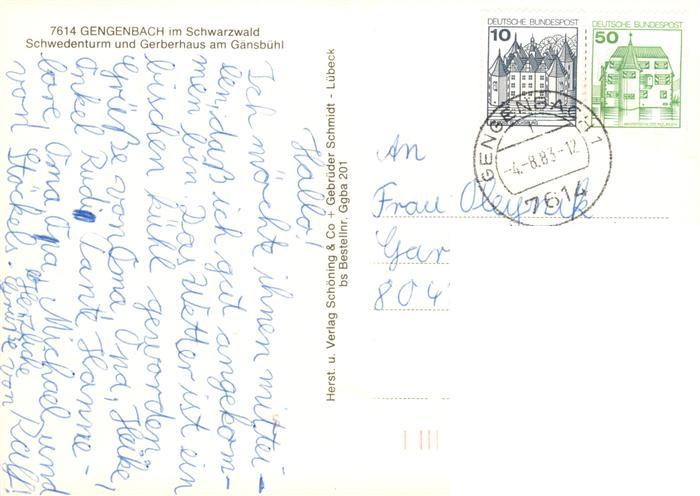 7614 GENGENBACH im Schwarzwald
Schwedenturm und Gerberhaus am Gänsbühl
Hallo!
Ich möchte ihnen mittei-
len, daß ich gut angekom-
men bin. Das Wetter ist ein
bischen kühl geworden.
Grüße von Oma, Opa, Heike,
Onkel Rudi, Tante Hanne-
lore, Oma, Opa, Michael und
von Stöckels. Herzliche
Grüße von Ralf!
Herst. u. Verlag Schöning & Co + Gebrüder Schmidt - Lübeck
bs Bestellnr. Ggba 201
DEUTSCHE BUNDESPOST
10
DEUTSCHE BUNDESPOST
50
GENGENBACH 1
-4.-8.83-12
7614
An
Frau
Gar
804